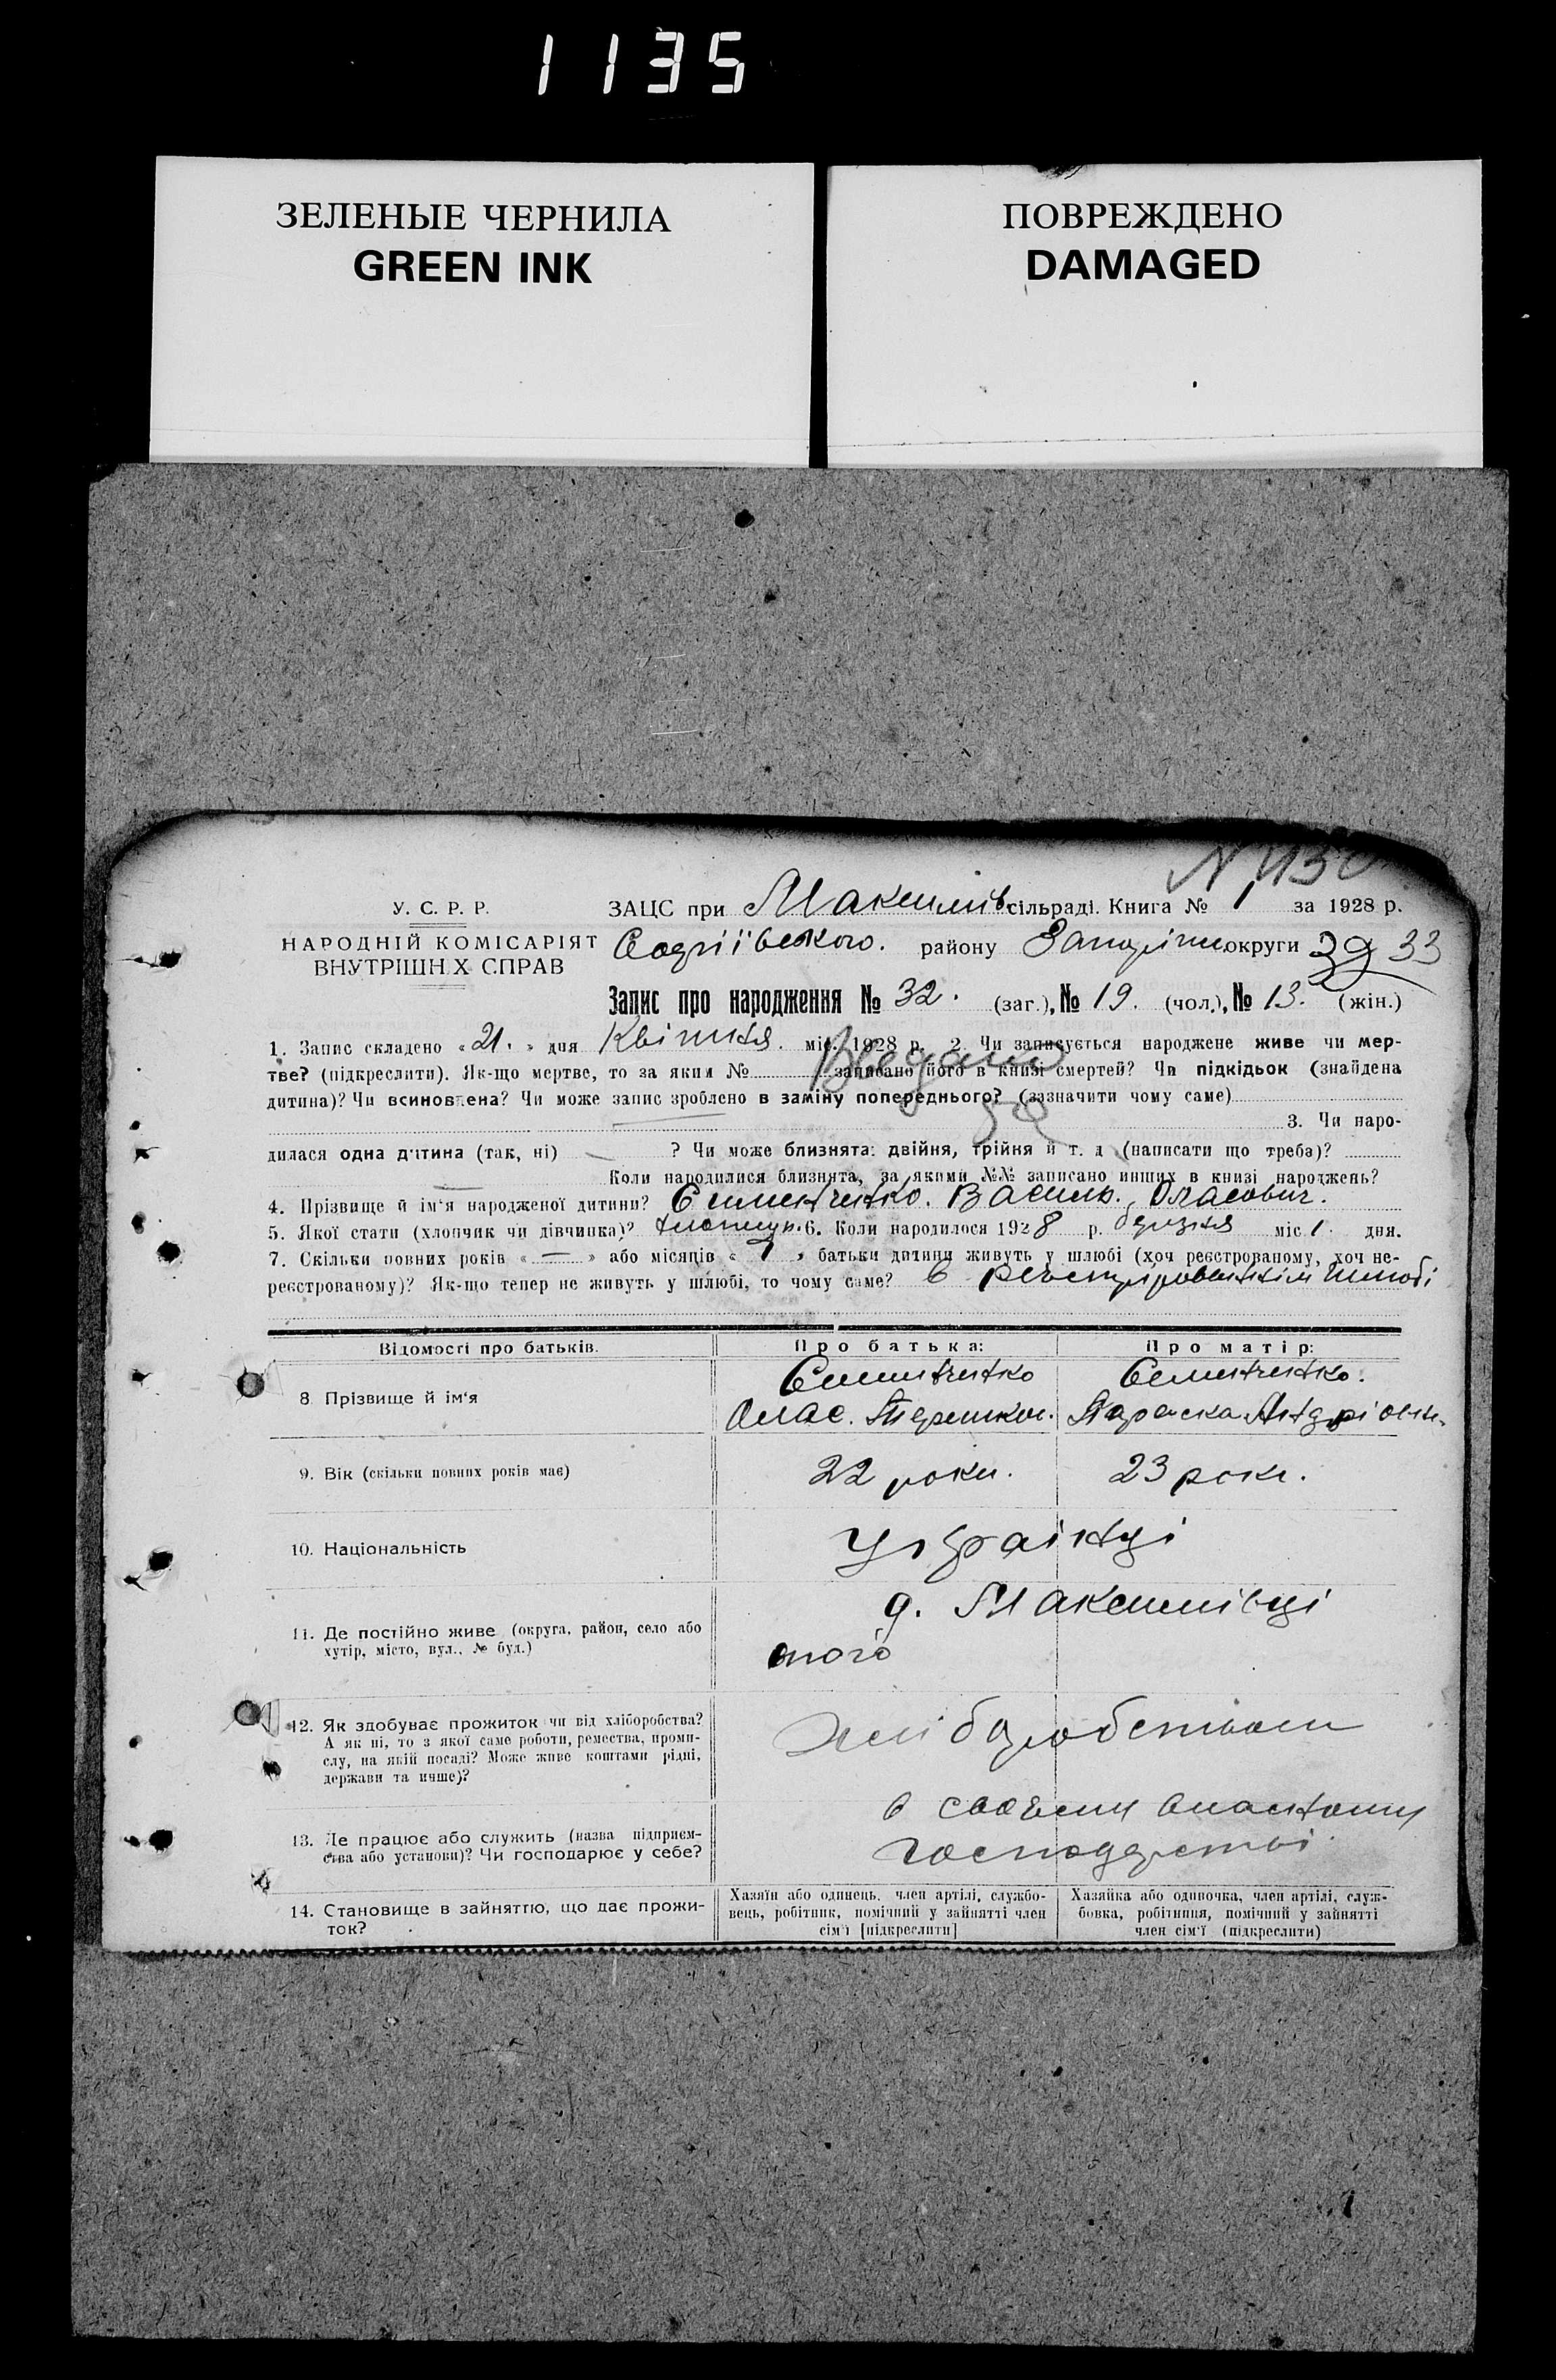 1135
ЗЕЛЕНЫЕ ЧЕРНИЛА
GREEN INK
ПОВРЕЖДЕНО
DAMAGED
У. С. Р. Р.
НАРОДНІЙ КОМІСАРІЯТ
ВНУТРІШН Х СПРАВ
ЗАЦС при Максимів. сільраді. Книга № 1 за 1928 р.
району округи 39 33
Запис про народження № 32. (заг.), № 19. (чол.), № 13. (жін.)
1. Запис складено «21.» дня Квітня міс. 1928 р. 2. Чи записується народжене живе чи мер-
тве? (підкреслити). Як-що мертве, то за яким № записано його в книзі смертей? Чи підкідьок (знайдена
дитина)? Чи всиновлена? Чи може запис зроблено в заміну попереднього? (зазначити чому саме)
3. Чи наро-
дилася одна дитина (так, ні) — ? Чи може близнята: двійня, трійня й т. д (написати що треба)?
— Коли народилися близнята, за якими №№ записано инших в книзі народжень?
4. Прізвище й ім'я народженої дитини? Семенченко. Василь. Власович.
5. Якої стати (хлопчик чи дівчинка)? хлопчик. 6. Коли народилося 1928 р. березня міс 1 дня.
7. Скільки повних років «—» або місяців «7» батьки дитини живуть у шлюбі (хоч реєстрованому, хоч не-
реєстрованому)? Як-що тепер не живуть у шлюбі, то чому саме? в шлюбі
Відомості про батьків.
Про батька:
Про матір:
8. Прізвище й ім'я
Семенченко
Влас.
Семенченко.
Параска
9. Вік (скільки повних років має)
22 роки.
23 роки.
10. Національність
Українці
11. Де постійно живе (округа, район, село або
хутір, місто, вул., № буд.)
Максимівці
того
12. Як здобуває прожиток чи від хліборобства?
А як ні, то з якої саме роботи, ремества, проми-
слу, на якій посаді? Може живе коштами рідні,
держави та инше)?
хліборобством
13. Де працює або служить (назва підприєм-
ства або установи)? Чи господарює у себе?
в своєму власному
господарстві.
14. Становище в зайняттю, що дає прожи-
ток?
Хазяїн або одинець, член артілі, службо-
вець, робітник, помічний у зайнятті член
сім'ї [підкреслити]
Хазяйка або одиночка, член артілі, служ-
бовка, робітниця, помічний у зайнятті
член сім'ї (підкреслити)